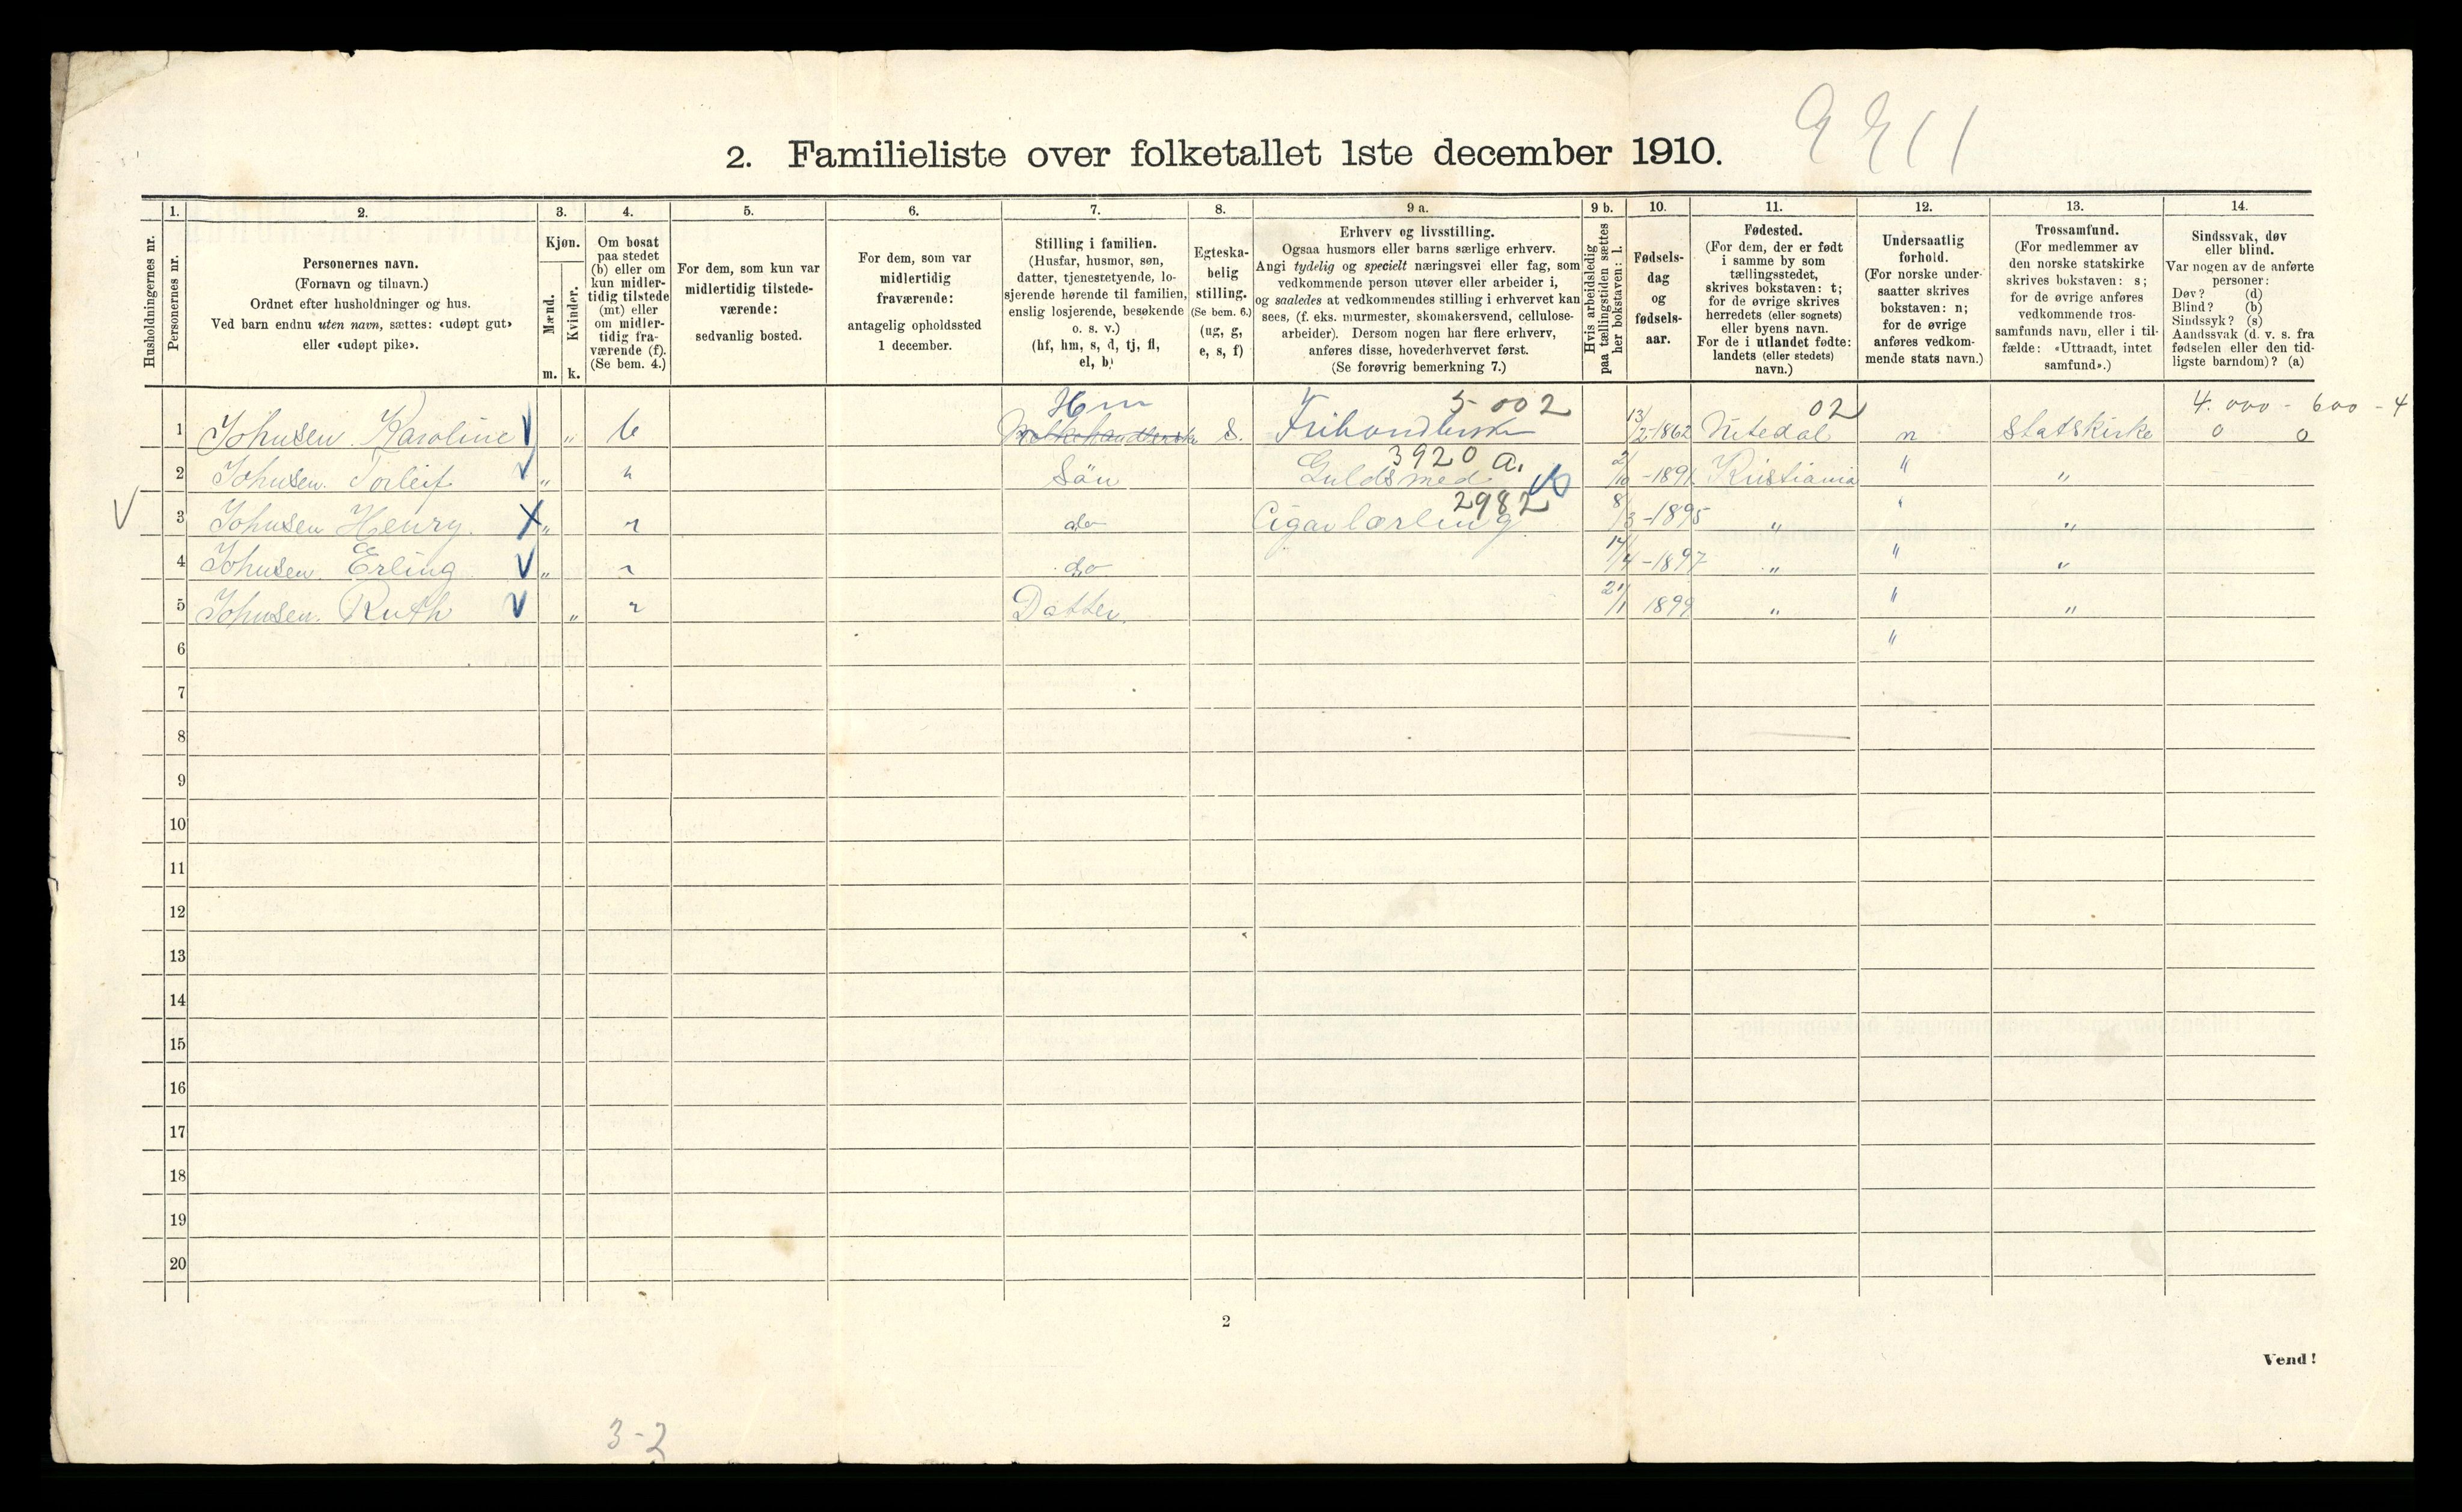 2. Familieliste over folketallet 1ste december 1910.
Husholdningernes nr.
1.
Personernes nr.
2.
Personernes navn.
(Fornavn og tilnavn.)
Ordnet efter husholdninger og hus.
Ved barn endnu uten navn, sættes: «udøpt gut»
eller «udøpt pike».
3.
Kjøn.
Mænd.
Kvinder.
m. k.
4.
Om bosat
paa stedet
(b) eller om
kun midler-
tidig tilstede
(mt) eller
om midler-
tidig fra-
værende (f).
(Se bem. 4.)
5.
For dem, som kun var
midlertidig tilstede-
værende:
sedvanlig bosted.
6.
For dem, som var
midlertidig
fraværende:
antagelig opholdssted
1 december.
7.
Stilling i familien.
(Husfar, husmor, søn,
datter, tjenestetyende, lo-
sjerende hørende til familien,
enslig losjerende, besøkende
o. s. v.)
(hf, hm, s, d, tj, fl,
el, b)
8.
Egteska-
belig
stilling.
(Se bem. 6.)
(ug, g,
e, s, f)
9 a.
Erhverv og livsstilling.
Ogsaa husmors eller barns særlige erhverv.
Angi tydelig og specielt næringsvei eller fag, som
vedkommende person utøver eller arbeider i,
og saaledes at vedkommendes stilling i erhvervet kan
sees, (f. eks. murmester, skomakersvend, cellulose-
arbeider). Dersom nogen har flere erhverv,
anføres disse, hovederhvervet først.
(Se forøvrig bemerkning 7.)
9 b.
Hvis arbeidsledig
paa tællingstiden sættes
her bokstaven: l.
10.
Fødsels-
dag
og
fødsels-
aar.
11.
Fødested.
(For dem, der er født
i samme by som
tællingsstedet,
skrives bokstaven: t;
for de øvrige skrives
herredets (eller sognets)
eller byens navn.
For de i utlandet fødte:
landets (eller stedets)
navn.)
12.
Undersaatlig
forhold.
(For norske under-
saatter skrives
bokstaven: n;
for de øvrige
anføres vedkom-
mende stats navn.)
13.
Trossamfund.
(For medlemmer av
den norske statskirke
skrives bokstaven: s;
for de øvrige anføres
vedkommende tros-
samfunds navn, eller i til-
fælde: «Uttraadt, intet
samfund».)
14.
Sindssvak, døv
eller blind.
Var nogen av de anførte
personer:
Døv? (d)
Blind? (b)
Sindssyk? (s)
Aandssvak (d. v. s. fra
fødselen eller den tid-
ligste barndom)? (a)
Hm 5-002 02 4.000 - 600 - 4
1 Johnsen. Karoline V „ b S. Frihandlerske 13/2-1862 Nitedal n Statskirke 0 0
3920 a.
2 Johnsen. Torleif V „ " Sön Guldsmed 2/10-1891 Kristiania " "
2982
V 3 Johnsen Henry. X „ " do Cigarlærling 8/3-1895 " " "
4 Johnsen. Erling V „ " do 17/4-1897 " " "
5 Johnsen. Ruth V „ " Datter. 21/1 1899 " " "
6 "
7
8
9
10
11
12
13
14
15
16
17
18
19
20
2
Vend!
3-2